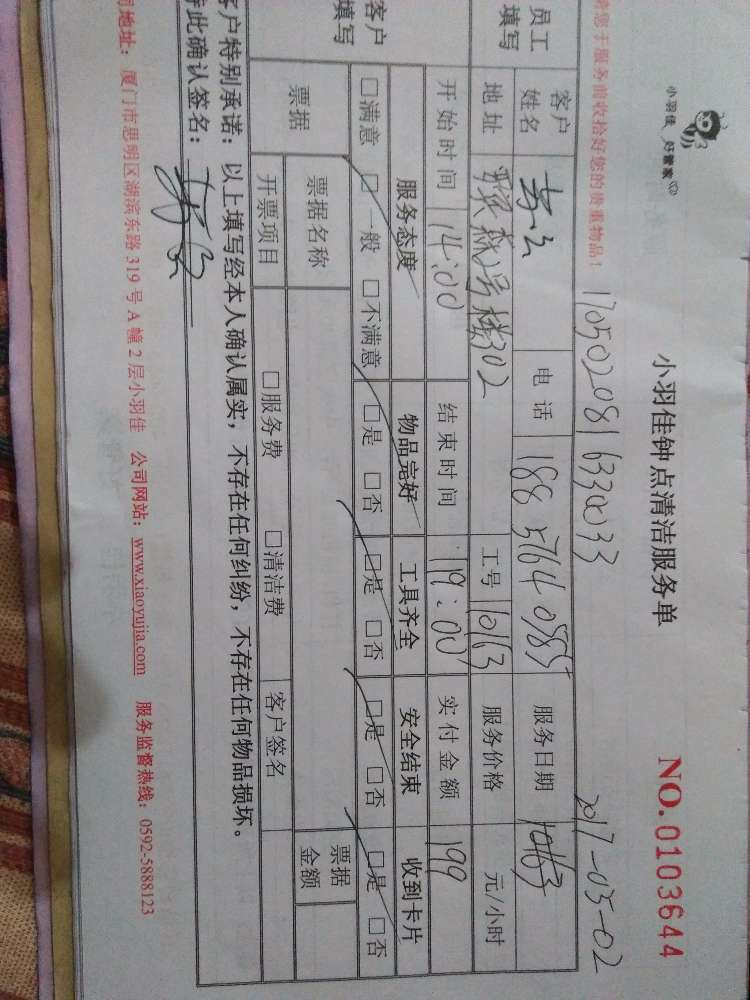 小羽佳 好管家
小羽佳钟点清洁服务单
NO.0103644
您于服务前收拾好您的贵重物品!
1705020816330033
2017-03-02
员工填写
客户姓名
电话 188 5764 0585
服务日期 10163
地址 2号楼302
工号 10163
服务价格 元/小时
开始时间 14:00
结束时间 19:00
实付金额 199
客户填写
服务态度 物品完好 工具齐全 安全结束 收到卡片
□满意 □一般 □不满意 □是 □否 □是 □否 □是 □否 □是 □否
票据
票据名称
票据金额
开票项目 □服务费 □清洁费 客户签名
户特别承诺:以上填写经本人确认属实,不存在任何纠纷,不存在任何物品损坏。
此确认签名:
地址:厦门市思明区湖滨东路 319 号 A 幢 2 层小羽佳 公司网站:www.xiaoyujia.com 服务监督热线:0592-5888123